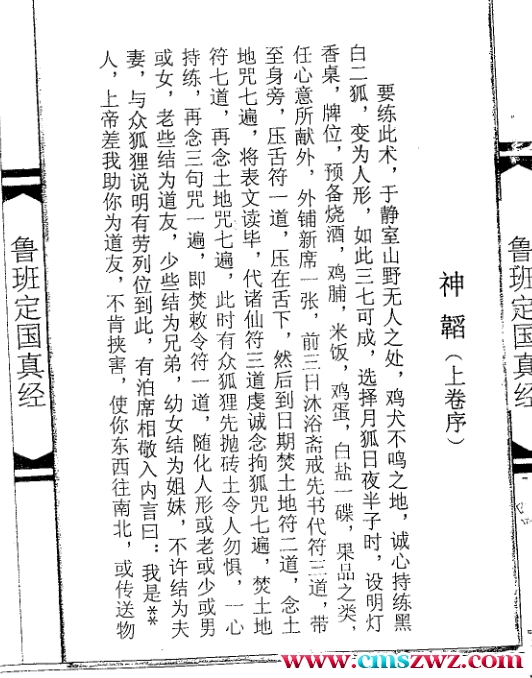 鲁班定国真经
神韬（上卷序）
要练此术，于静室山野无人之处，鸡犬不鸣之地，诚心持练黑
白二狐，变为人形，如此三七可成，选择月狐日夜半子时，设明灯
香桌，牌位，预备烧酒，鸡脯，米饭，鸡蛋，白盐一碟，果品之类，
任心意所献外，外铺新席一张，前三日沐浴斋戒先书代符三道，带
至身旁，压舌符一道，压在舌下，然后到日期焚土地符二道，念土
地咒七遍，将表文读毕，代诸仙符三道虔诚念拘狐咒七遍，焚土地
符七道，再念土地咒七遍，此时有众狐狸先抛砖土令人勿惧，一心
持练，再念三句咒一遍，即焚敕令符一道，随化人形或老或少或男
或女，老些结为道友，少些结为兄弟，幼女结为姐妹，不许结为夫
妻，与众狐狸说明有劳列位到此，有泊席相敬入内言曰：我是**
人，上帝差我助你为道友，不肯挟害，使你东西往南北，或传送物
鲁班定国真经
www.cmszwz.com